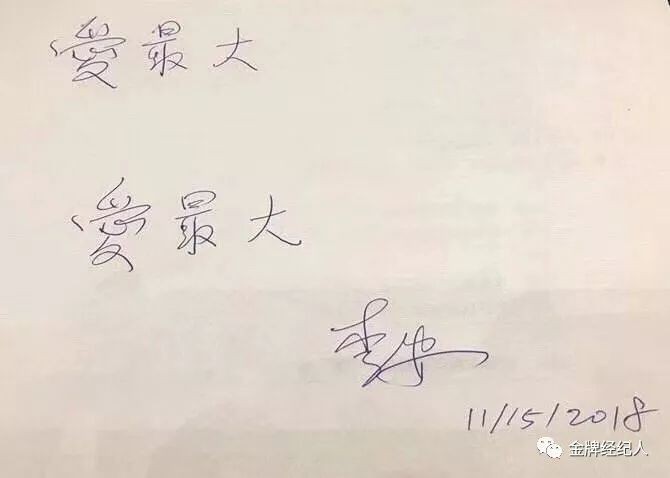 愛最大
愛最大
李安
11/15/2018
金牌经纪人